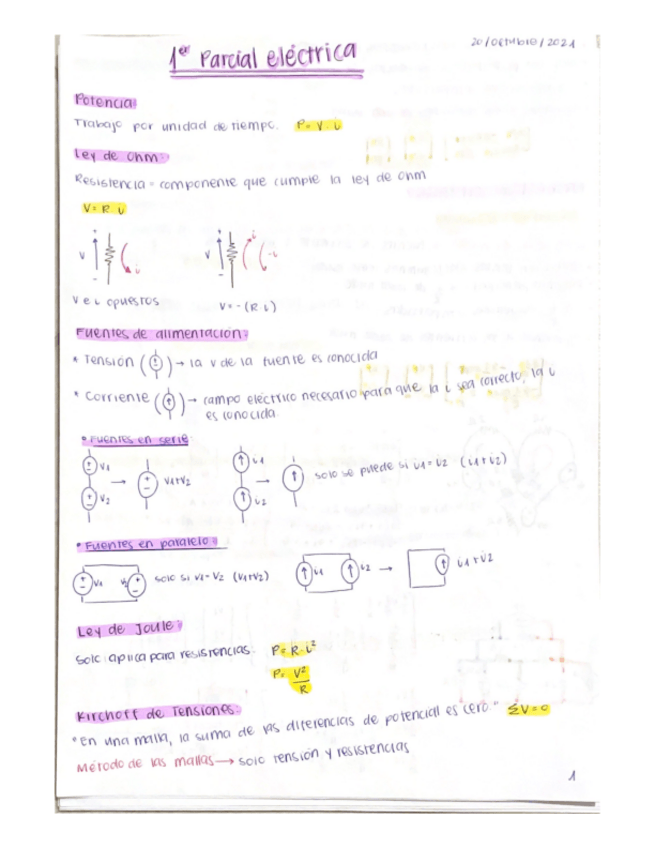 20/octubre/2021
1er Parcial eléctrica
Potencia:
Trabajo por unidad de tiempo. P= V·i
Ley de Ohm:
Resistencia = componente que cumple la ley de Ohm
V= R·i
+ + i
V i V -i
- -
V e i opuestos V= -(R·i)
Fuentes de alimentación:
* Tensión ( ) → la v de la fuente es conocida
* Corriente ( ) → campo eléctrico necesario para que la i sea correcto, la i
es conocida.
• Fuentes en serie:
V1 V2 → V1+V2 i1 i2 → solo se puede si i1=i2 (i1+i2)
• Fuentes en paralelo:
V1 V2 solo si V1=V2 (V1+V2) i1 i2 → i1+i2
Ley de Joule:
Solo aplica para resistencias. P= R·i²
P= V²/R
Kirchoff de Tensiones:
"En una malla, la suma de las diferencias de potencial es cero." ΣV=0
Método de las mallas → solo tensión y resistencias
1